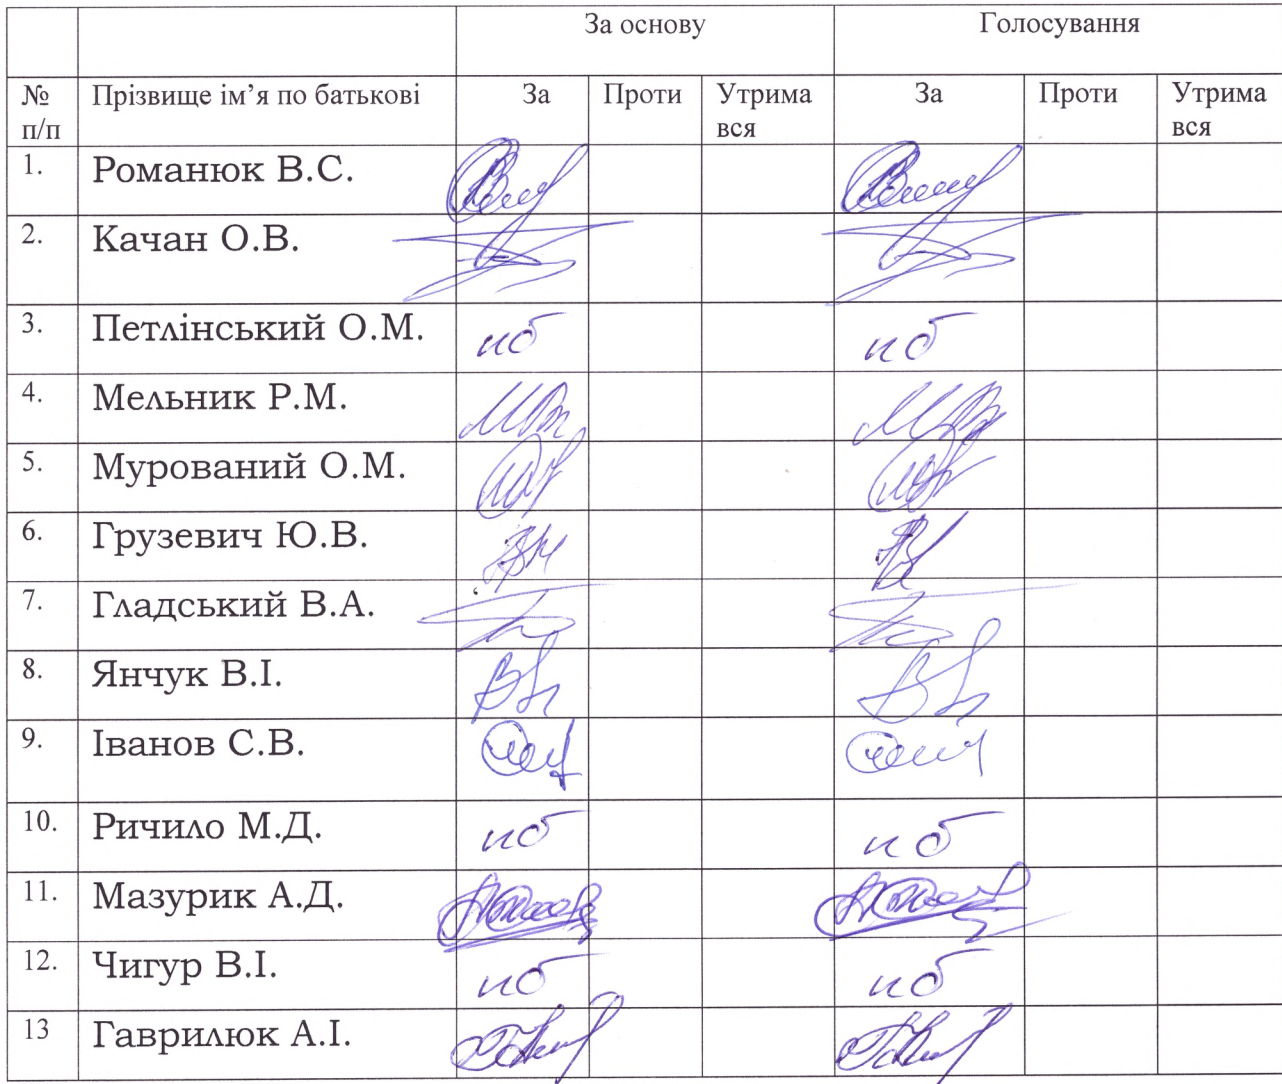 За основу Голосування
№ п/п Прізвище ім’я по батькові За Проти Утрима вся За Проти Утрима вся
1. Романюк В.С.
2. Качан О.В.
3. Петлінський О.М. нб нб
4. Мельник Р.М.
5. Мурований О.М.
6. Грузевич Ю.В.
7. Гладський В.А.
8. Янчук В.І.
9. Іванов С.В.
10. Ричило М.Д. нб нб
11. Мазурик А.Д.
12. Чигур В.І. нб нб
13 Гаврилюк А.І.